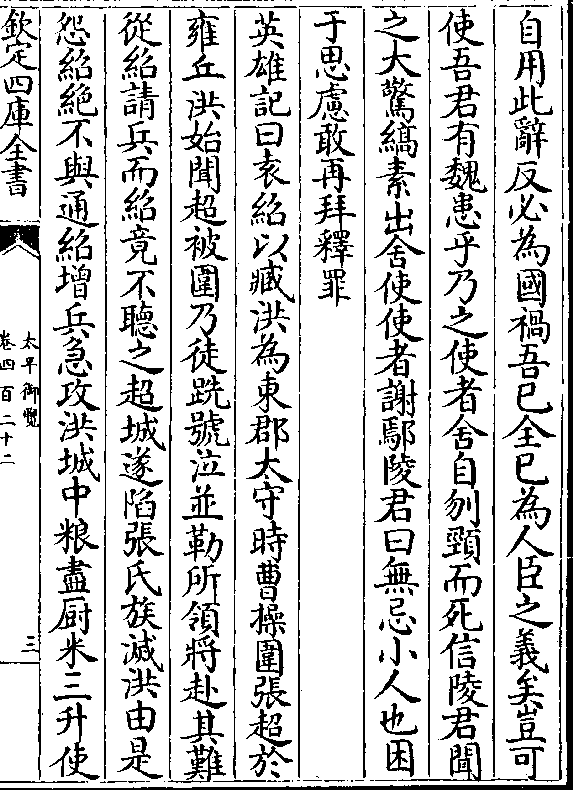 自用此辭反必為國禍吾已全已為人臣之義矣豈可
使吾君有魏患乎乃之使者舍自刎頸而死信陵君聞
之大驚縞素出舍使使者謝鄢陵君曰無忌小人也困
于思慮敢再拜釋罪
英雄記曰袁紹以臧洪為東郡太守時曹操圍張超於
雍丘洪始聞超被圍乃徒跣號泣並勒所領將赴其難
從紹請兵而紹竟不聽之超城遂陷張氏族滅洪由是
怨紹絶不與通紹增兵急攻洪城中粮盡厨米三升使
欽定四庫全書
太平御覽
卷四百二十二
三